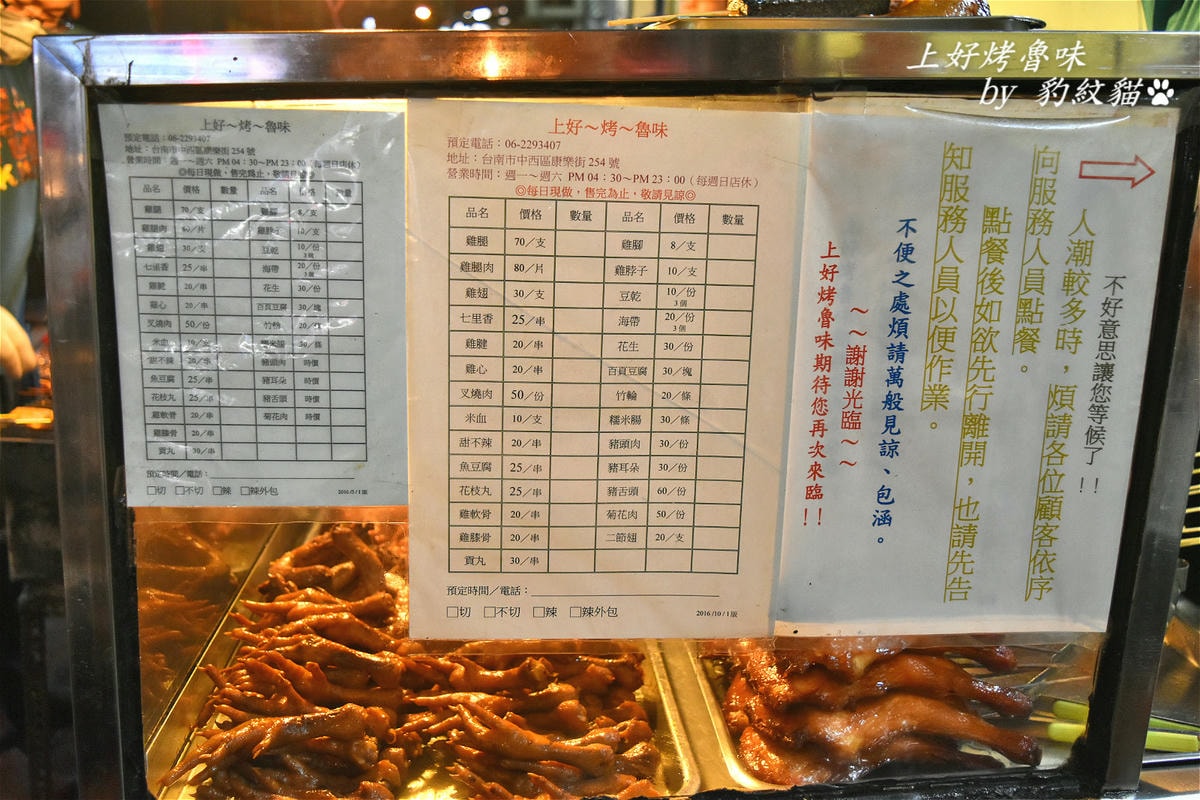 上好烤魯味
by 豹紋貓
上好～烤～魯味
預定電話：06-2293407
地址：台南市中西區康樂街 254 號
營業時間：週一～週六 PM 04：30～PM 23：00（每週日店休）
◎每日現做，售完為止，敬請見諒◎
品名 價格 數量 品名 價格 數量
雞腿 70／支 8／支
雞腿肉 80／片 雞脖子 10／支
雞翅 30／支 豆乾 10／份 3個
七里香 25／串 海帶 20／份 3個
雞腱 20／串 花生 30／份
雞心 20／串 百頁豆腐 30／塊
叉燒肉 50／份 竹輪 20／條
米血 10／支 糯米腸 30／條
甜不辣 20／串 豬頭肉 時價
魚豆腐 25／串 豬耳朵 時價
花枝丸 25／串 豬舌頭 時價
雞軟骨 20／串 菊花肉 時價
雞膝骨 20／串
貢丸 30／串
預定時間／電話：
□切 □不切 □辣 □辣外包 2016/5/1版
上好～烤～魯味
預定電話：06-2293407
地址：台南市中西區康樂街 254 號
營業時間：週一～週六 PM 04：30～PM 23：00（每週日店休）
◎每日現做，售完為止，敬請見諒◎
品名 價格 數量 品名 價格 數量
雞腿 70／支 雞腳 8／支
雞腿肉 80／片 雞脖子 10／支
雞翅 30／支 豆乾 10／份 3個
七里香 25／串 海帶 20／份 3個
雞腱 20／串 花生 30／份
雞心 20／串 百頁豆腐 30／塊
叉燒肉 50／份 竹輪 20／條
米血 10／支 糯米腸 30／條
甜不辣 20／串 豬頭肉 30／份
魚豆腐 25／串 豬耳朵 30／份
花枝丸 25／串 豬舌頭 60／份
雞軟骨 20／串 菊花肉 50／份
雞膝骨 20／串 二節翅 20／支
貢丸 30／串
預定時間／電話：
□切 □不切 □辣 □辣外包 2016/10/1版
不好意思讓您等候了!!
人潮較多時，煩請各位顧客依序
向服務人員點餐。
點餐後如欲先行離開，也請先告
知服務人員以便作業。
不便之處煩請萬般見諒、包涵。
～～謝謝光臨～～
上好烤魯味期待您再次來臨!!